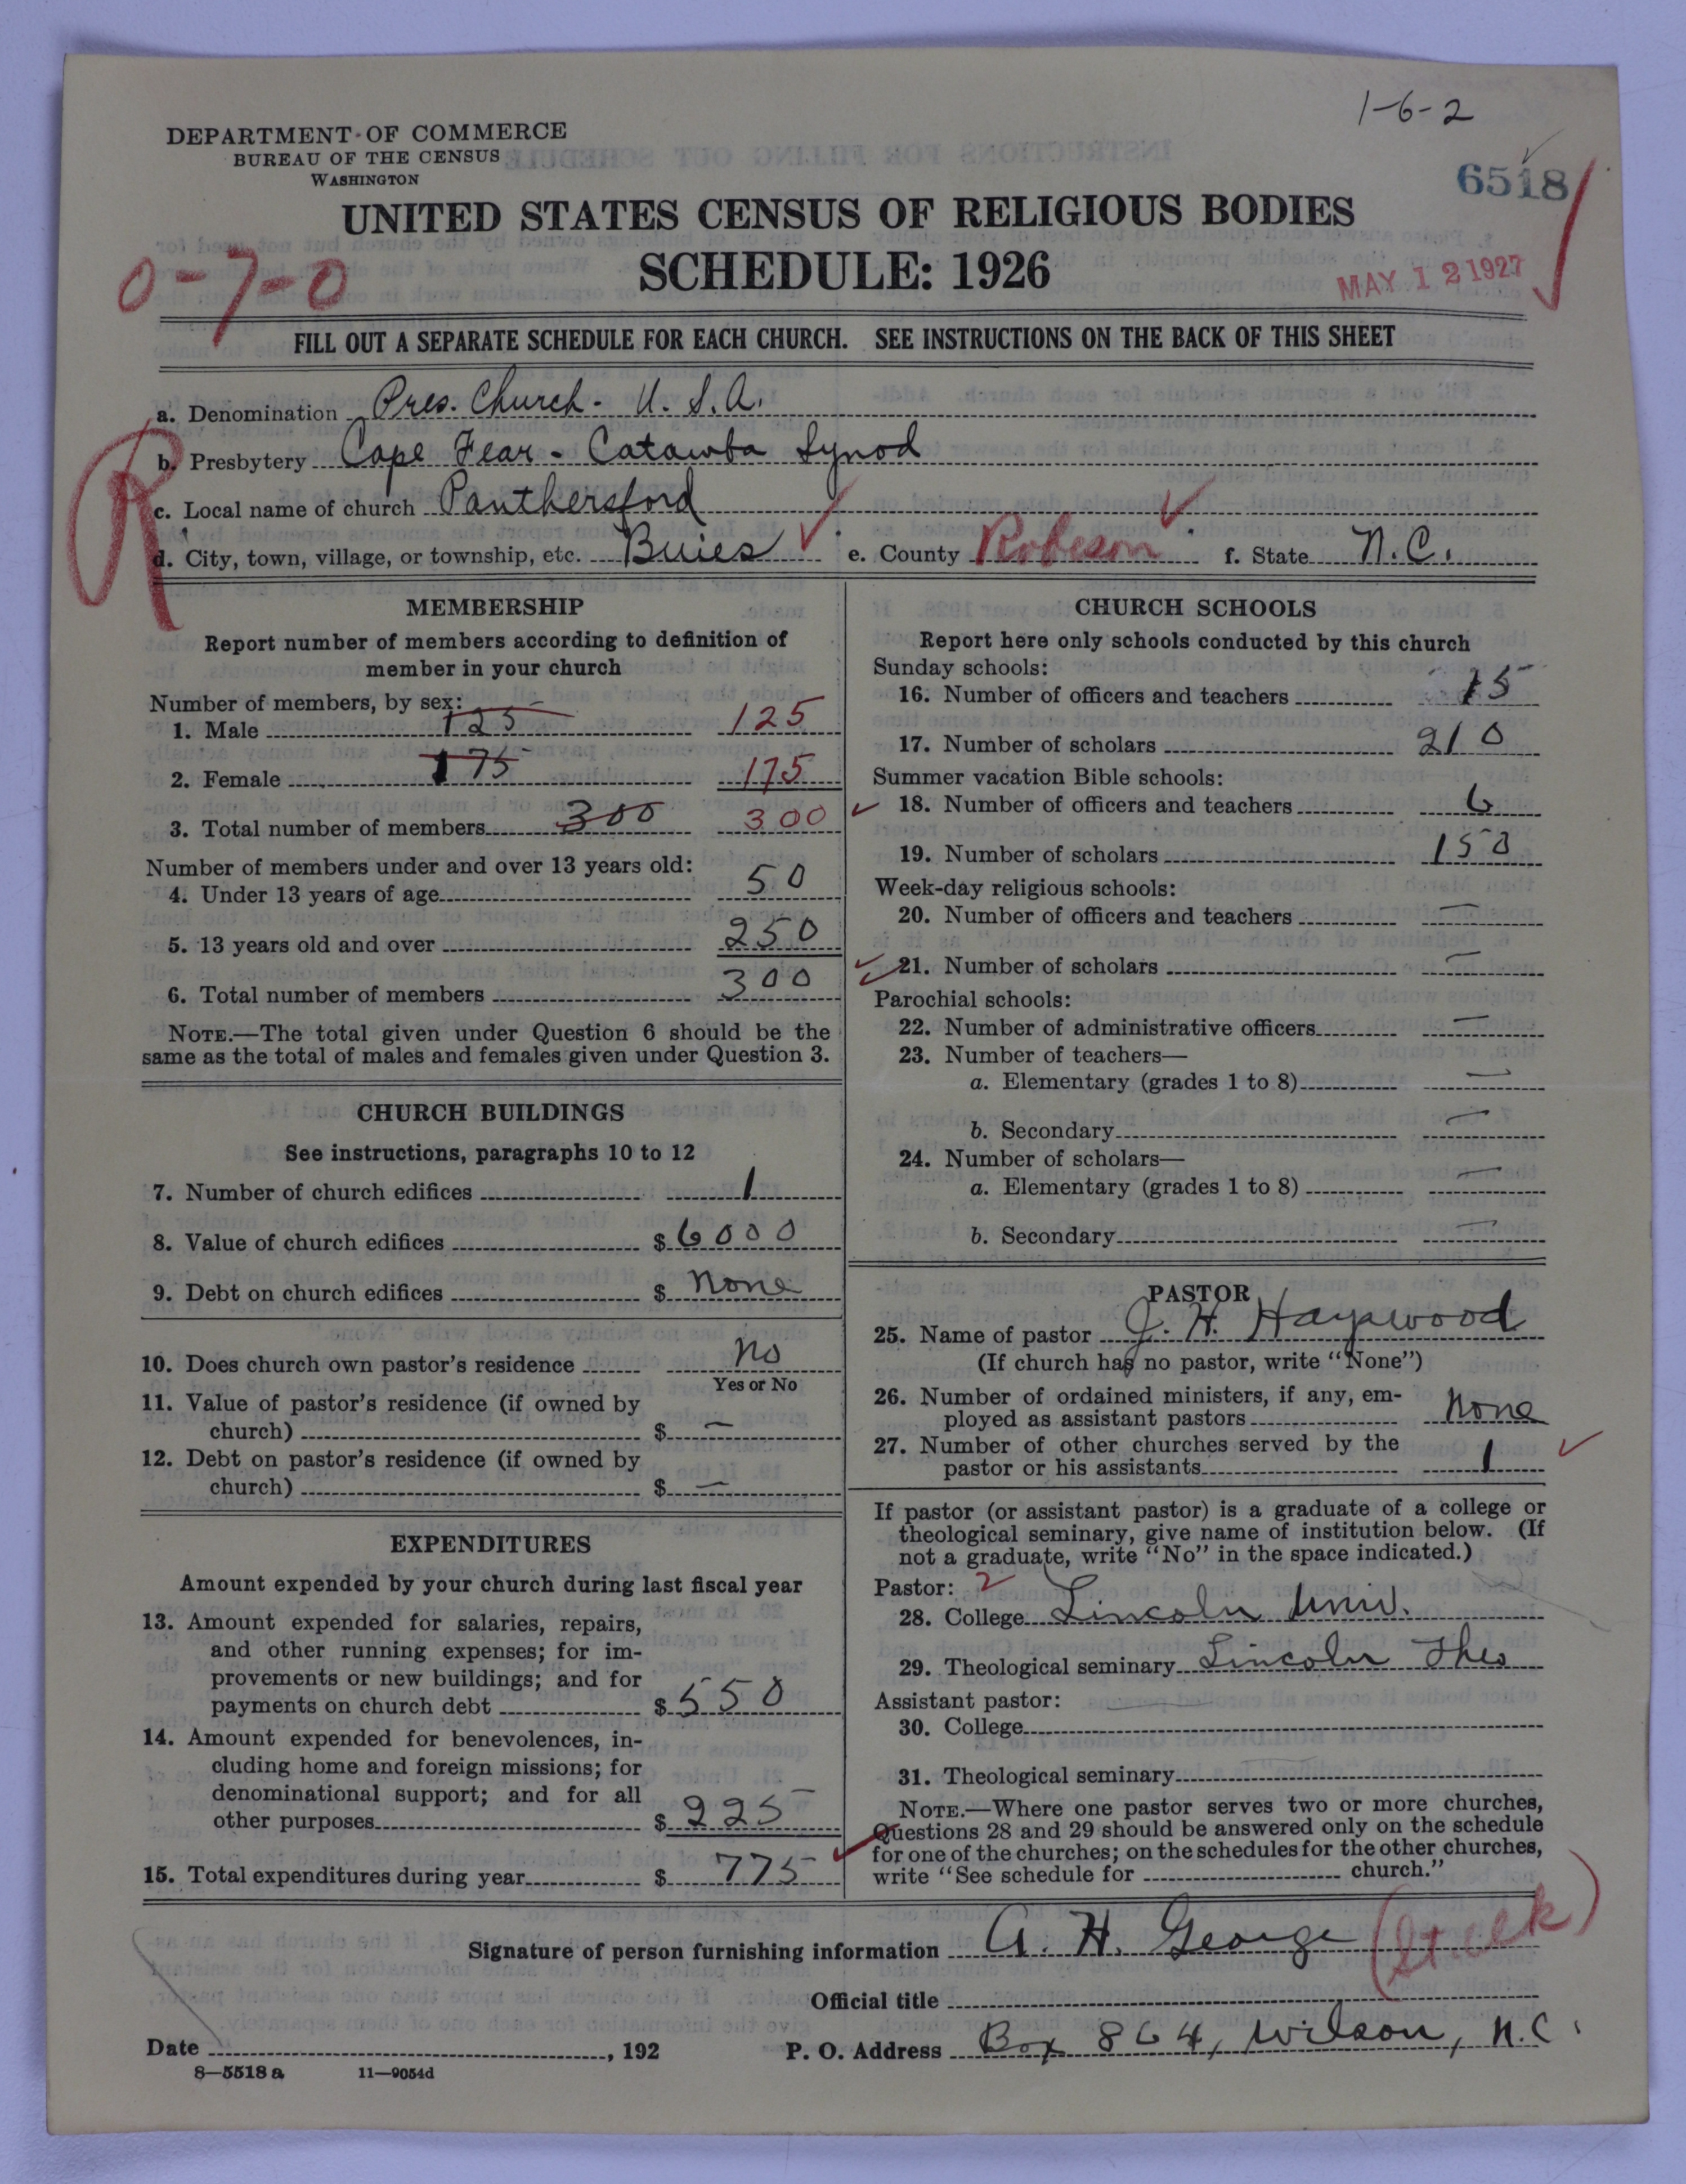 1-6-2
DEPARTMENT OF COMMERCE
BUREAU OF THE CENSUS
WASHINGTON
6518
UNITED STATES CENSUS OF RELIGIOUS BODIES
SCHEDULE: 1926
0-7-0
MAY 12 1927
FILL OUT A SEPARATE SCHEDULE FOR EACH CHURCH. SEE INSTRUCTIONS ON THE BACK OF THIS SHEET
a. Denomination Pres. Church - U.S.A.
b. Presbytery Cape Fear - Catawba Synod
c. Local name of church Panthersford
R
d. City, town, village, or township, etc. Buies e. County Robeson f. State N.C.
MEMBERSHIP
Report number of members according to definition of
member in your church
Number of members, by sex:
1. Male 125 125
2. Female 175 175
3. Total number of members 300 300
Number of members under and over 13 years old:
4. Under 13 years of age 50
5. 13 years old and over 250
6. Total number of members 300
NOTE.—The total given under Question 6 should be the
same as the total of males and females given under Question 3.
CHURCH BUILDINGS
See instructions, paragraphs 10 to 12
7. Number of church edifices 1
8. Value of church edifices $ 6000
9. Debt on church edifices $ None
10. Does church own pastor's residence No
Yes or No
11. Value of pastor's residence (if owned by
church) $ —
12. Debt on pastor's residence (if owned by
church) $ —
EXPENDITURES
Amount expended by your church during last fiscal year
13. Amount expended for salaries, repairs,
and other running expenses; for im-
provements or new buildings; and for
payments on church debt $ 550
14. Amount expended for benevolences, in-
cluding home and foreign missions; for
denominational support; and for all
other purposes $ 225
15. Total expenditures during year $ 775
CHURCH SCHOOLS
Report here only schools conducted by this church
Sunday schools:
16. Number of officers and teachers 15
17. Number of scholars 210
Summer vacation Bible schools:
18. Number of officers and teachers 6
19. Number of scholars 150
Week-day religious schools:
20. Number of officers and teachers —
21. Number of scholars —
Parochial schools:
22. Number of administrative officers —
23. Number of teachers—
a. Elementary (grades 1 to 8) —
b. Secondary —
24. Number of scholars—
a. Elementary (grades 1 to 8) —
b. Secondary —
PASTOR
25. Name of pastor J. H. Haywood
(If church has no pastor, write "None")
26. Number of ordained ministers, if any, em-
ployed as assistant pastors None
27. Number of other churches served by the
pastor or his assistants 1
If pastor (or assistant pastor) is a graduate of a college or
theological seminary, give name of institution below. (If
not a graduate, write "No" in the space indicated.)
Pastor: 2
28. College Lincoln Univ.
29. Theological seminary Lincoln Theo
Assistant pastor:
30. College
31. Theological seminary
NOTE.—Where one pastor serves two or more churches,
Questions 28 and 29 should be answered only on the schedule
for one of the churches; on the schedules for the other churches,
write "See schedule for church."
Signature of person furnishing information A. H. George
Official title
Date , 192 P. O. Address Box 864, Wilson, N.C.
8—5518 a 11—9054d